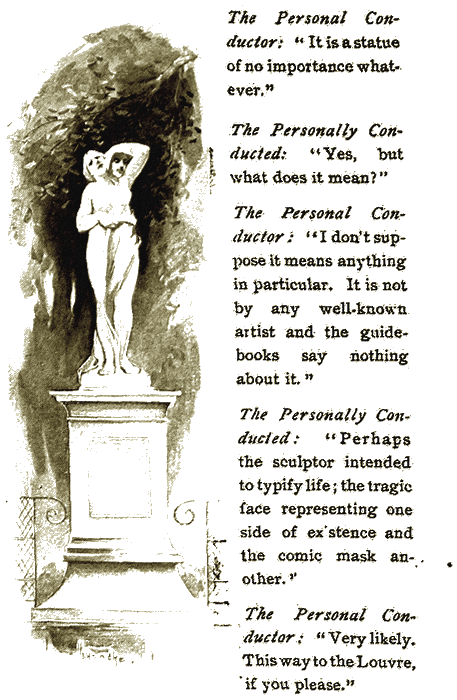 The Personal Con-
ductor: "It is a statue
of no importance what-
ever."
The Personally Con-
ducted: "Yes, but
what does it mean?"
The Personal Con-
ductor: "I don't sup-
pose it means anything
in particular. It is not
by any well-known
artist and the guide-
books say nothing
about it."
The Personally Con-
ducted: "Perhaps
the sculptor intended
to typify life; the tragic
face representing one
side of existence and
the comic mask an-
other."
The Personal Con-
ductor: "Very likely.
This way to the Louvre,
if you please."